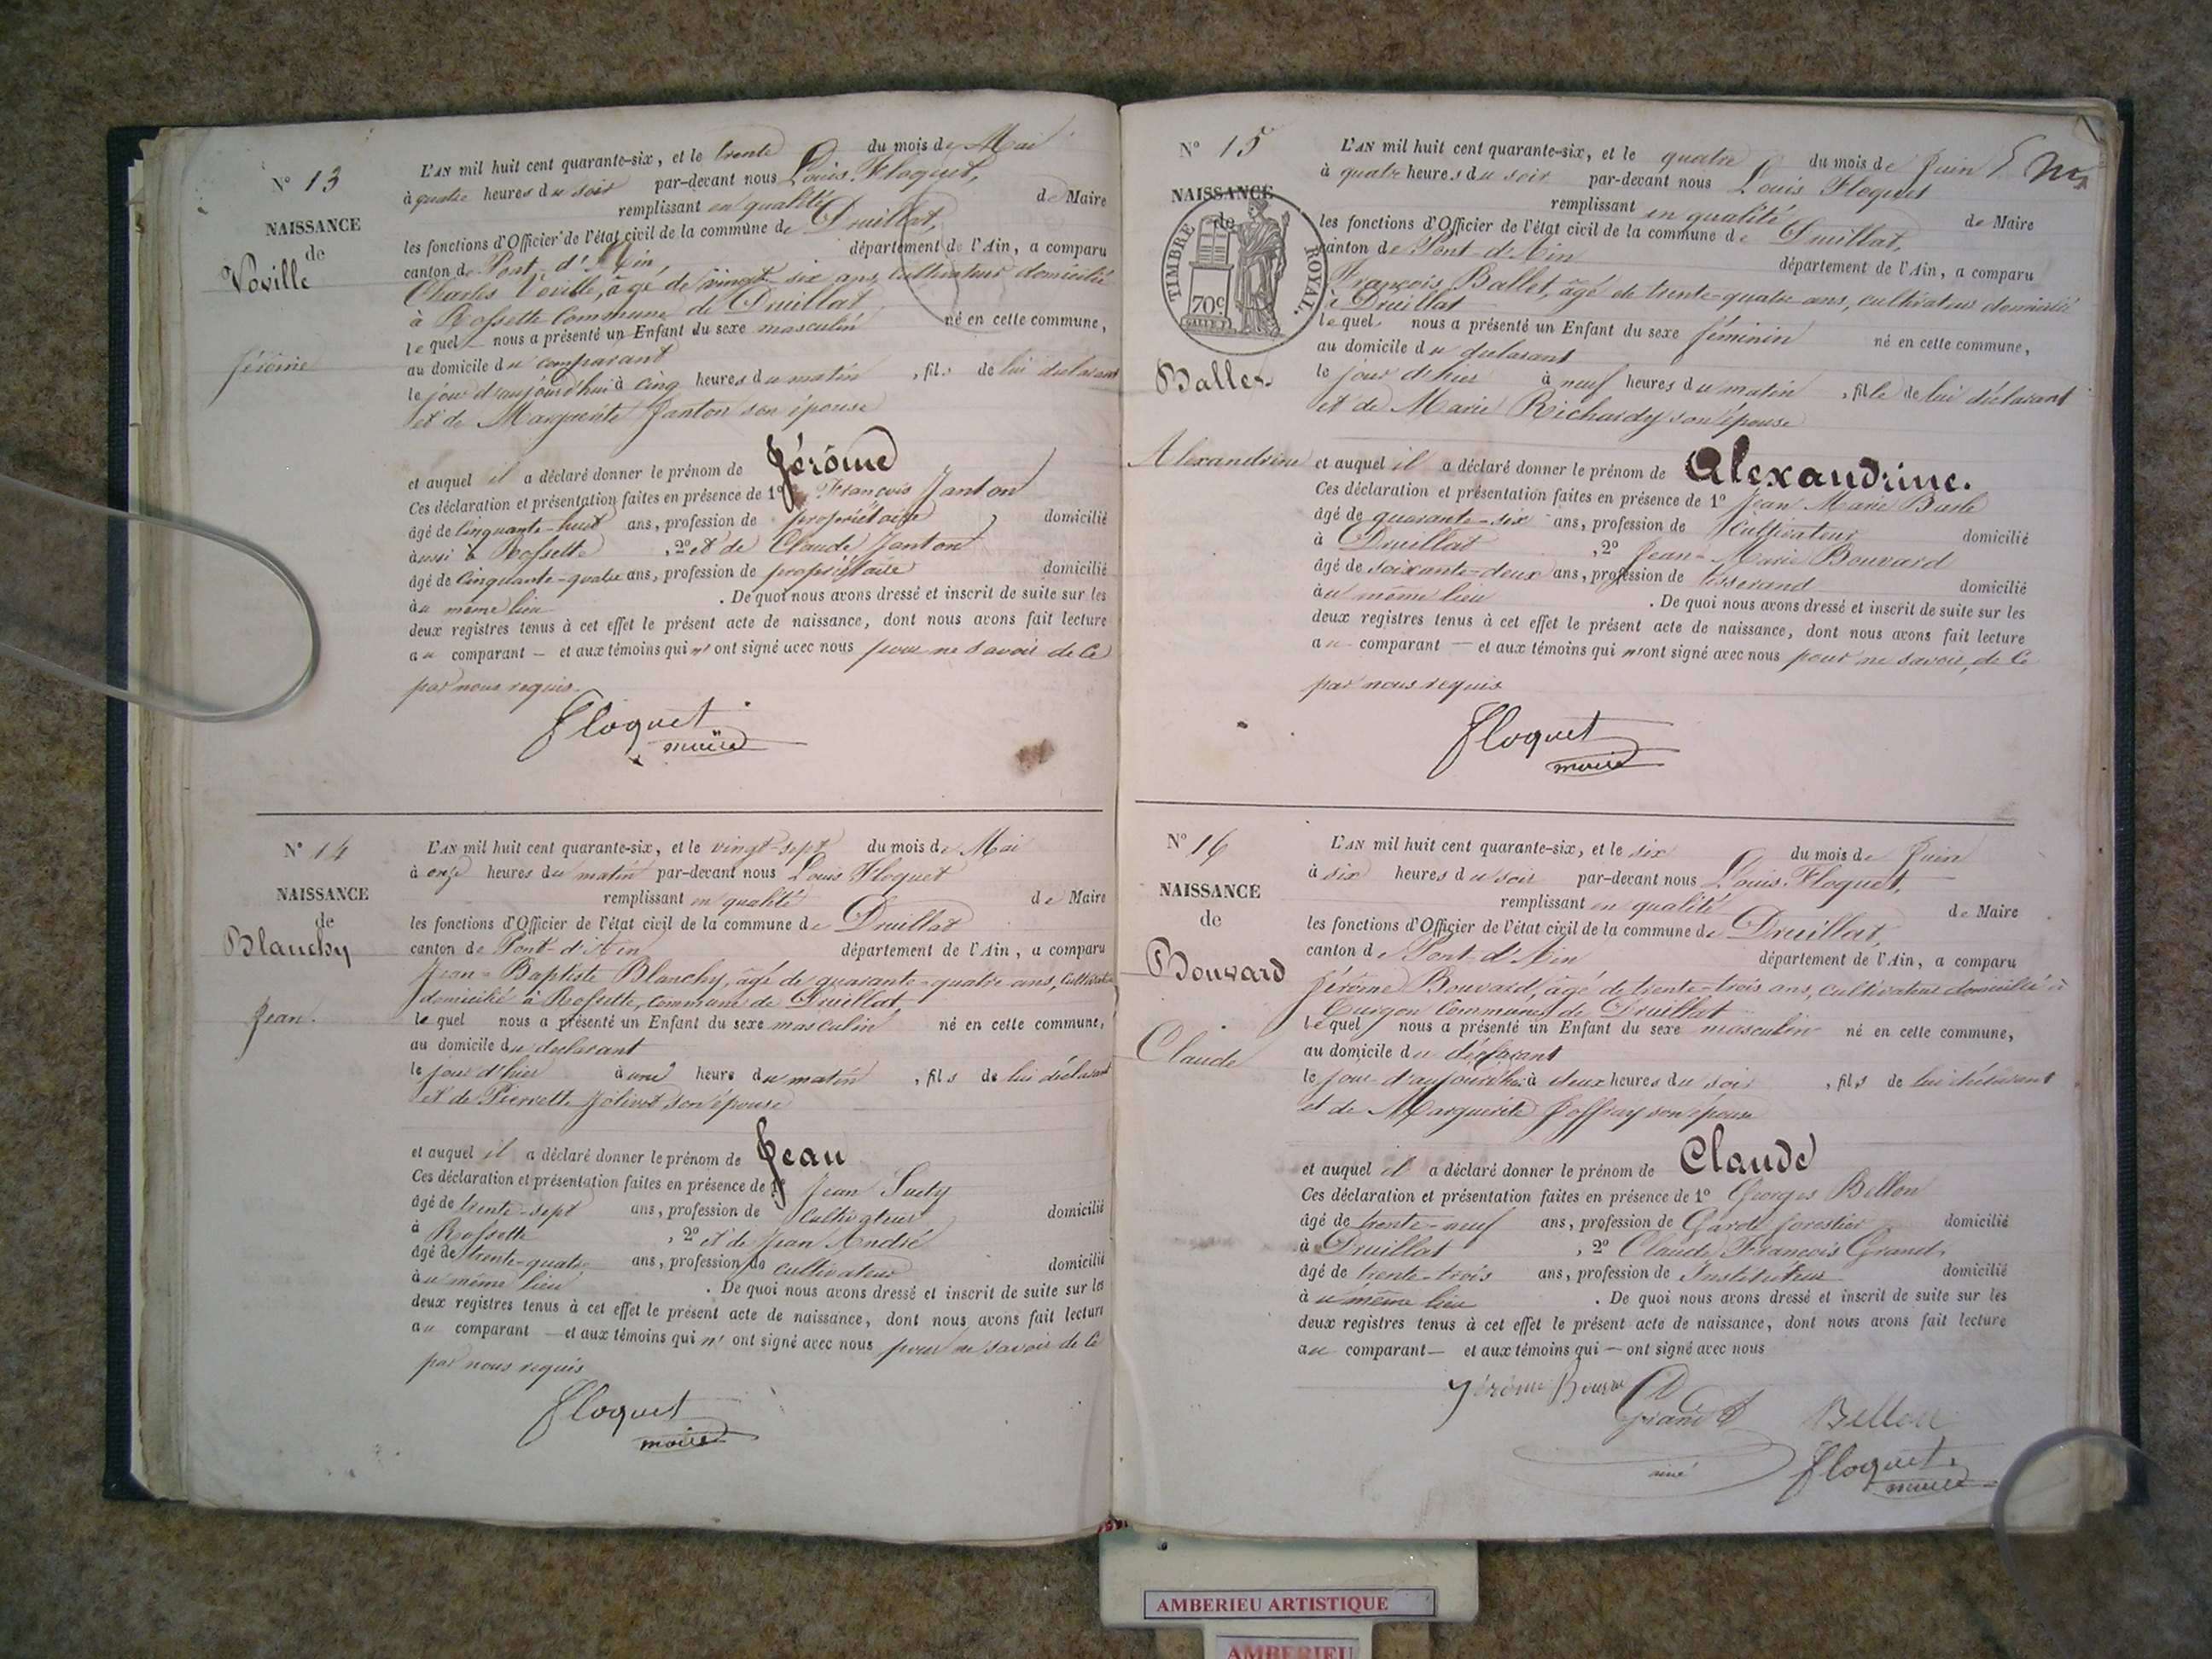 N° 13
NAISSANCE
de
Voville
Jérôme
L'AN mil huit cent quarante-six, et le trente du mois de Mai
à quatre heures du soir par-devant nous Louis Floquet,
remplissant en qualité de Maire
les fonctions d'Officier de l'état civil de la commune de Druillat,
canton de Pont-d'Ain département de l'Ain, a comparu
Charles Voville, âgé de vingt-six ans, cultivateur domicilié
à Rossette Commune de Druillat
lequel nous a présenté un Enfant du sexe masculin né en cette commune,
au domicile du comparant
le jour d'aujourd'hui à cinq heures du matin, fils de lui déclarant
et de Marguerite Janton son épouse
et auquel il a déclaré donner le prénom de Jérôme
Ces déclaration et présentation faites en présence de 1° François Janton
âgé de cinquante-huit ans, profession de propriétaire, domicilié
aussi à Rossette, 2° et de Claude Janton
âgé de cinquante-quatre ans, profession de propriétaire domicilié
au même lieu. De quoi nous avons dressé et inscrit de suite sur les
deux registres tenus à cet effet le présent acte de naissance, dont nous avons fait lecture
au comparant — et aux témoins qui n'ont signé avec nous pour ne savoir de ce
par nous requis.
Floquet
maire
N° 14
NAISSANCE
de
Blanchy
Jean.
L'AN mil huit cent quarante-six, et le vingt-sept du mois de Mai
à onze heures du matin par-devant nous Louis Floquet
remplissant en qualité de Maire
les fonctions d'Officier de l'état civil de la commune de Druillat
canton de Pont-d'Ain département de l'Ain, a comparu
Jean-Baptiste Blanchy, âgé de quarante-quatre ans, cultivateur
domicilié à Rossette, commune de Druillat
lequel nous a présenté un Enfant du sexe masculin né en cette commune,
au domicile du déclarant
le jour d'hier à une heure du matin, fils de lui déclarant
et de Pierrette Jolivet son épouse
et auquel il a déclaré donner le prénom de Jean
Ces déclaration et présentation faites en présence de 1° Jean
âgé de trente-sept ans, profession de Cultivateur domicilié
à Rossette, 2° et de Jean André
âgé de trente-quatre ans, profession de cultivateur domicilié
au même lieu. De quoi nous avons dressé et inscrit de suite sur les
deux registres tenus à cet effet le présent acte de naissance, dont nous avons fait lecture
au comparant — et aux témoins qui n'ont signé avec nous pour ne savoir de ce
par nous requis
Floquet
maire
N° 15
NAISSANCE
de
TIMBRE ROYAL.
70c
Ballet
Alexandrine
L'AN mil huit cent quarante-six, et le quatre du mois de Juin
à quatre heures du soir par-devant nous Louis Floquet
remplissant en qualité de Maire
les fonctions d'Officier de l'état civil de la commune de Druillat,
canton de Pont-d'Ain département de l'Ain, a comparu
François Ballet, âgé de trente-quatre ans, cultivateur domicilié
à Druillat
lequel nous a présenté un Enfant du sexe féminin né en cette commune,
au domicile du déclarant
le jour d'hier à neuf heures du matin, fille de lui déclarant
et de Marie Richardy son épouse
et auquel il a déclaré donner le prénom de Alexandrine.
Ces déclaration et présentation faites en présence de 1° Jean Marie
âgé de quarante-six ans, profession de Cultivateur domicilié
à Druillat, 2° Jean-Marie Bouvard
âgé de soixante-deux ans, profession de tisserand domicilié
au même lieu. De quoi nous avons dressé et inscrit de suite sur les
deux registres tenus à cet effet le présent acte de naissance, dont nous avons fait lecture
au comparant — et aux témoins qui n'ont signé avec nous pour ne savoir, de ce
par nous requis
Floquet
maire
N° 16
NAISSANCE
de
Bouvard
Claude
L'AN mil huit cent quarante-six, et le six du mois de Juin
à six heures du soir par-devant nous Louis Floquet,
remplissant en qualité de Maire
les fonctions d'Officier de l'état civil de la commune de Druillat,
canton de Pont-d'Ain département de l'Ain, a comparu
Jérôme Bouvard, âgé de trente-trois ans, cultivateur domicilié à
Turgon Commune de Druillat
lequel nous a présenté un Enfant du sexe masculin né en cette commune,
au domicile du déclarant
le jour d'aujourd'hui à deux heures du soir, fils de lui déclarant
et de Marguerite Joffray son épouse
et auquel il a déclaré donner le prénom de Claude
Ces déclaration et présentation faites en présence de 1° Georges Bellon
âgé de trente-neuf ans, profession de Garde forestier domicilié
à Druillat, 2° Claude François Grand,
âgé de trente-trois ans, profession de Instituteur domicilié
au même lieu. De quoi nous avons dressé et inscrit de suite sur les
deux registres tenus à cet effet le présent acte de naissance, dont nous avons fait lecture
au comparant — et aux témoins qui — ont signé avec nous
Jérôme Bouvard
Grand Bellon
Floquet
maire
AMBERIEU ARTISTIQUE
AMBERIEU